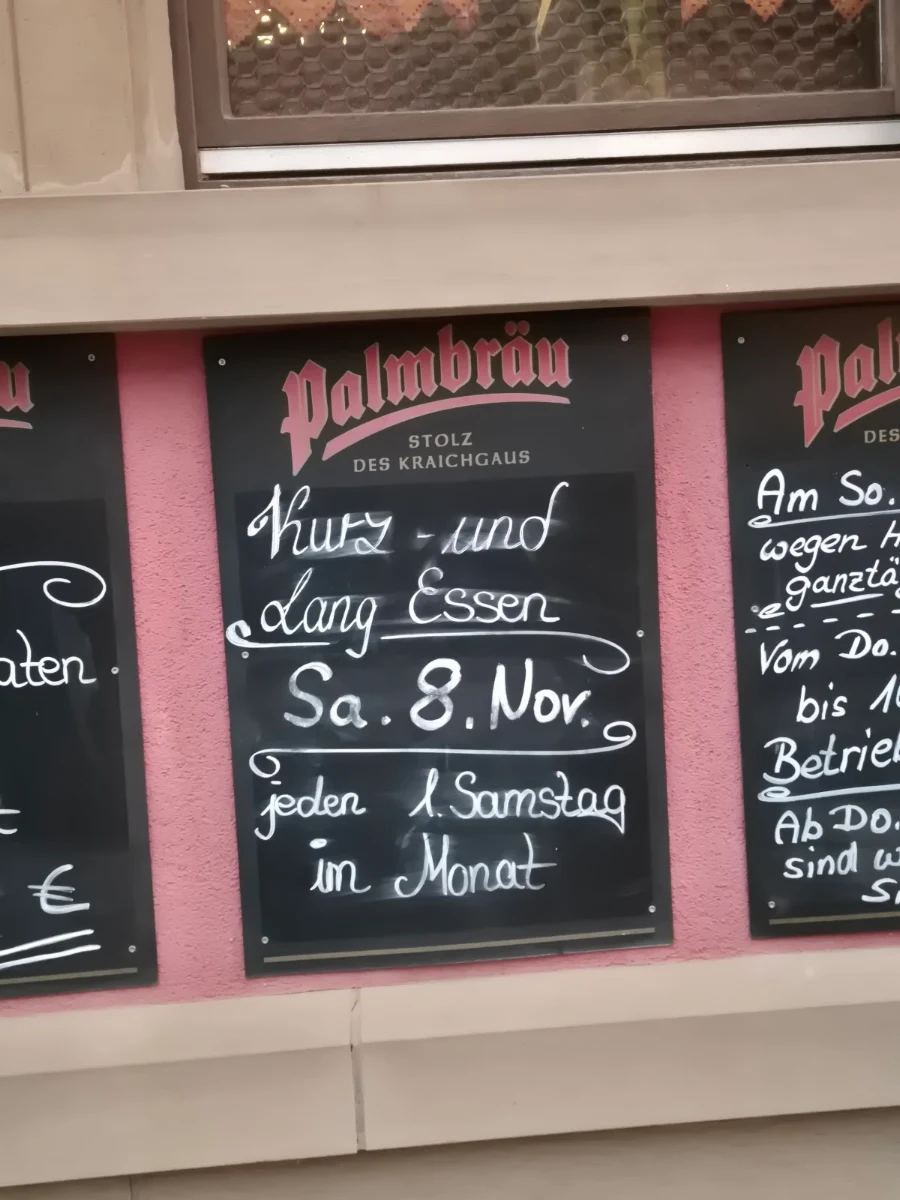 äu
aten
t
€
Palmbräu
STOLZ
DES KRAICHGAUS
Kurz - und
Lang Essen
Sa. 8. Nov.
jeden 1. Samstag
im Monat
Pal
DES
Am So.
wegen H
ganztä
Vom Do.
bis 1
Betrieb
Ab Do.
sind w